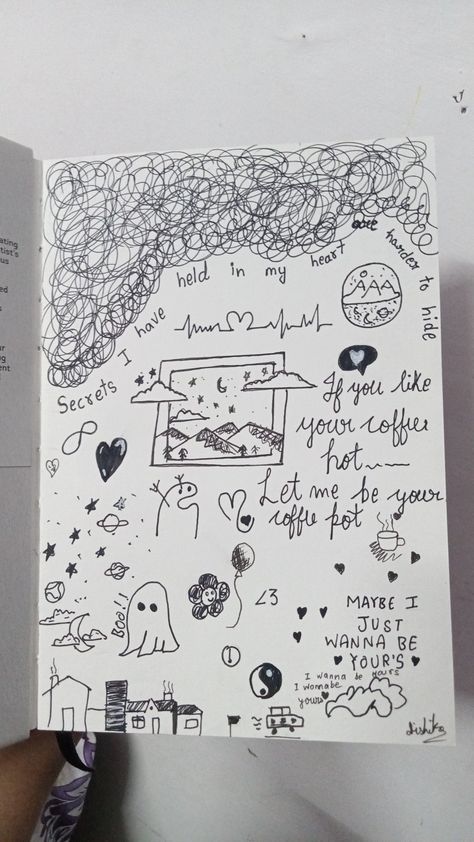 ating
tist's
us
ed
s
ur
ng
ent
Secrets I have held in my heart are harder to hide
If you like
your coffee
hot
Let me be your
coffee pot
<3
BOO!!
MAYBE I
JUST
WANNA BE
YOUR'S
I wanna be yours
I wannabe
yours